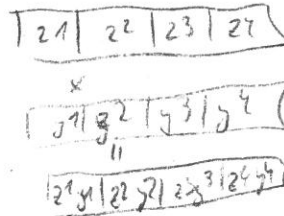 z1 | z2 | z3 | z4
×
y1 | y2 | y3 | y4
||
z1y1 | z2y2 | z3y3 | z4y4